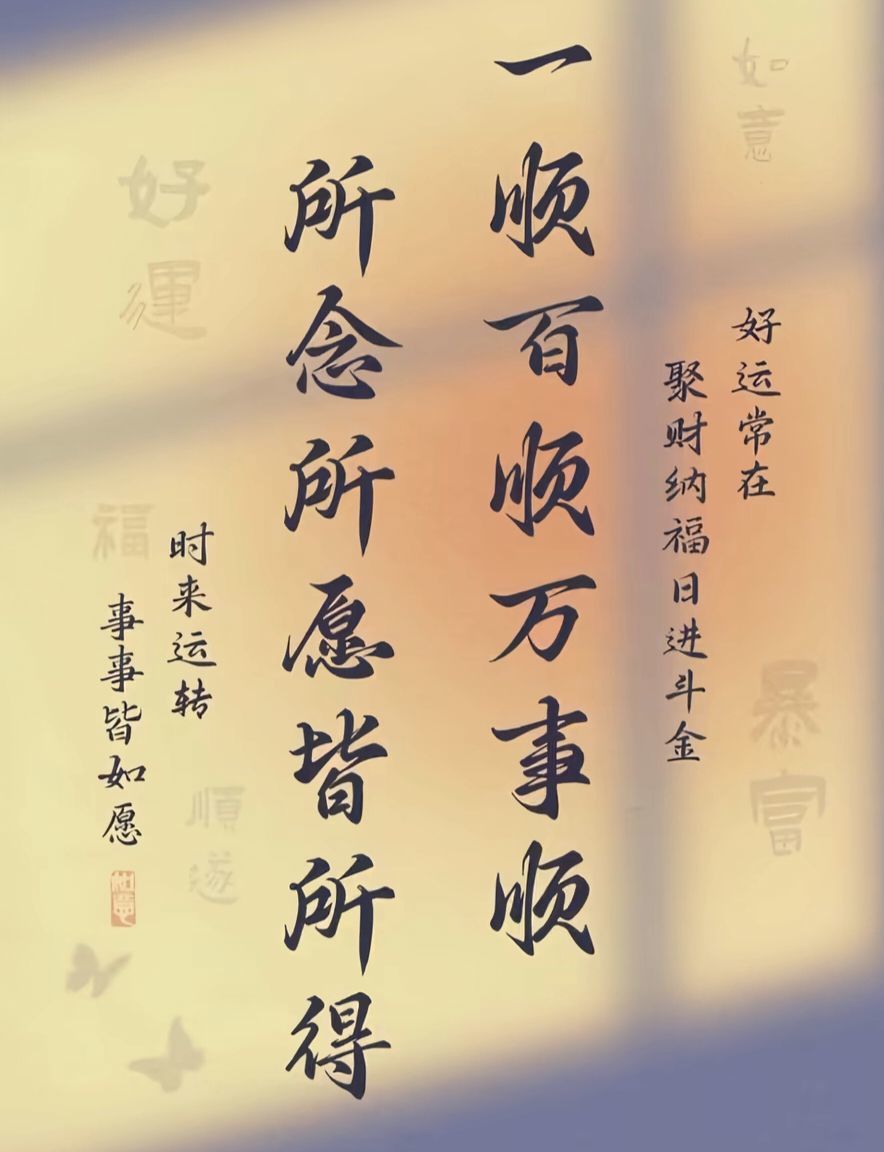 如意
好运常在
聚财纳福日进斗金
暴富
一顺百顺万事顺
所念所愿皆所得
好運
福
时来运转
事事皆如愿
順遂
如意